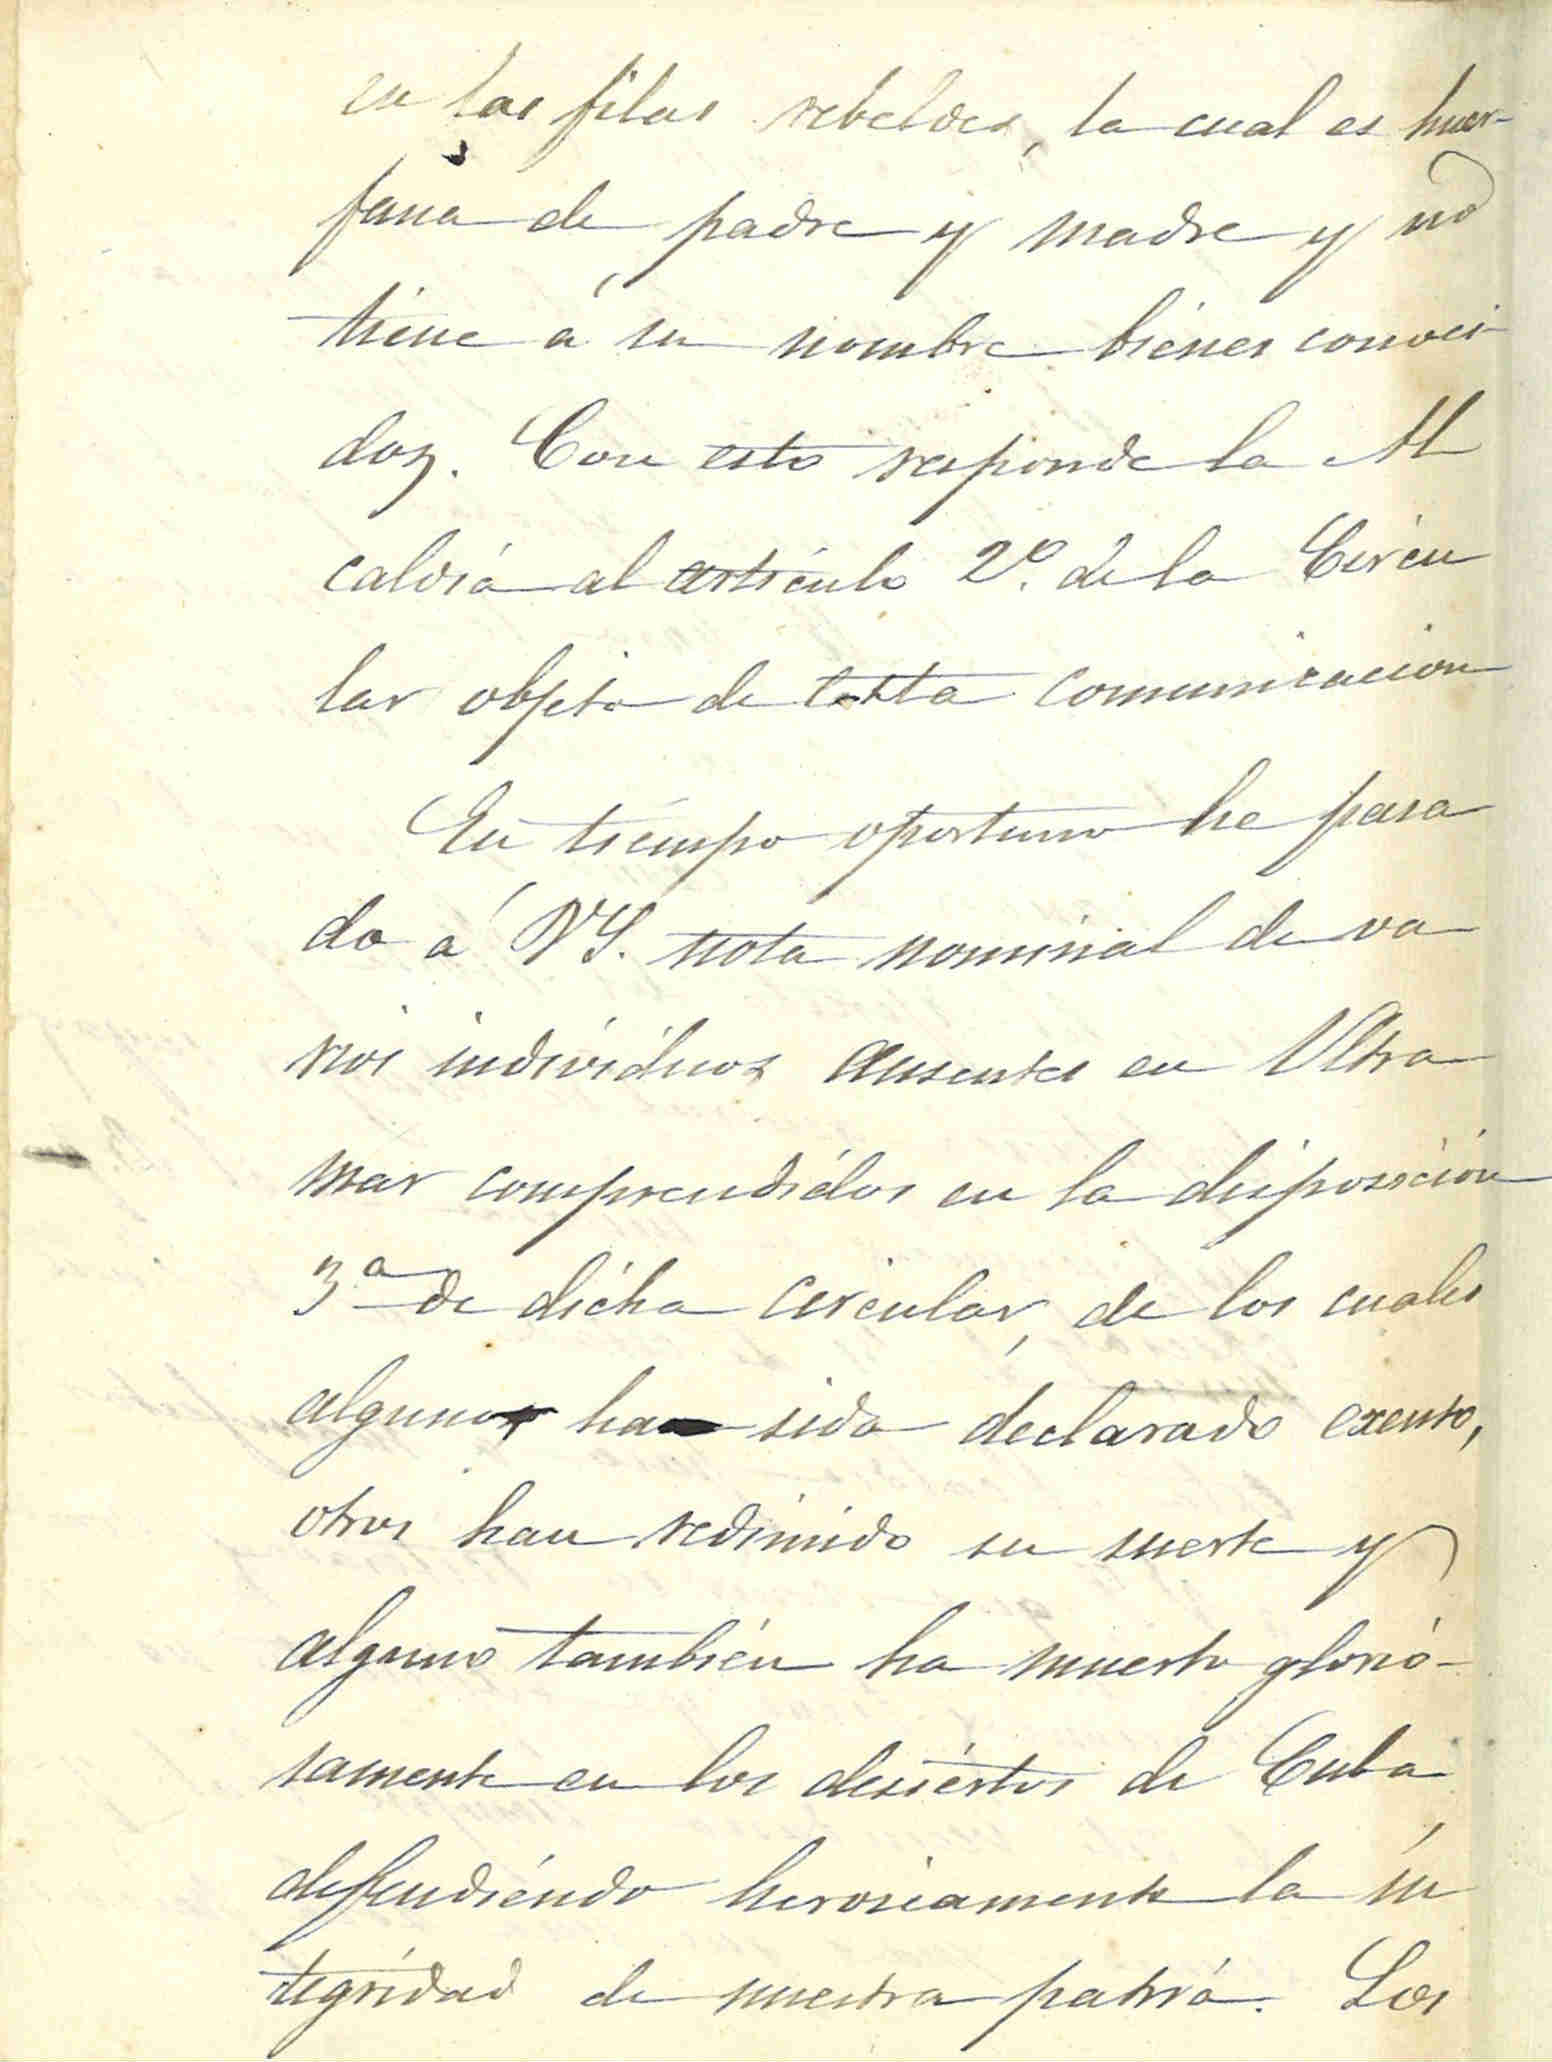 en las filas rebeldes, la cual es huer-
fana de padre y madre y no
tiene á su nombre bienes conoci-
dos. Con esto responde la Al
caldia al articulo 2º. de la Circu
lar objeto de esta comunicacion
En tiempo oportuno he pasa
do á VS. nota nominal de va
rios individuos ausentes en Ultra
mar comprendidos en la disposicion
3ª de dicha circular, de los cuales
alguno ha sido declarado exento,
otros han redimido su suerte y
alguno también ha muerto glorio-
samente en los desiertos de Cuba,
defendiendo heroicamente la in
tegridad de nuestra patria. Los